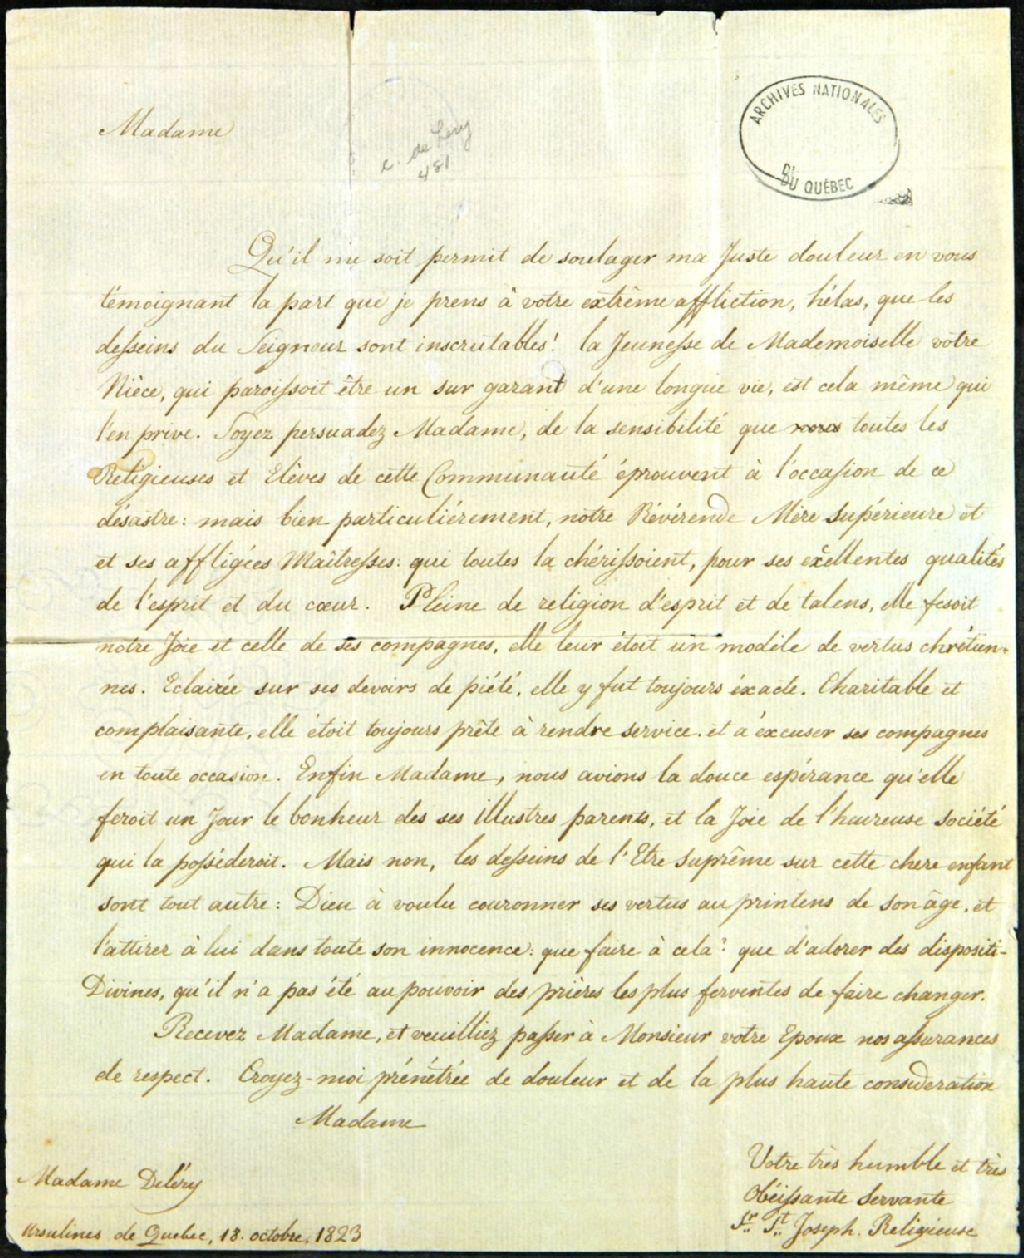 ARCHIVES NATIONALES
DU QUÉBEC
Madame
c. de Lery
481
Qu'il me soit permit de soulager ma Juste douleur en vous
témoignant la part que je prens à votre extrême affliction, hélas, que les
desseins du Seigneur sont inscrutables! la Jeunesse de Mademoiselle votre
Nièce, qui paroissoit être un sur garant d'une longue vie, est cela même qui
l'en prive. Soyez persuadez Madame, de la sensibilité que toutes les
Religieuses et Elèves de cette Communauté éprouvent à l'occasion de ce
désastre: mais bien particuliérement, nôtre Révérende Mère Supérieure et
et ses affligées Maîtresses: qui toutes la chérissoient, pour ses exellentes qualités
de l'esprit et du cœur. Pleine de religion d'esprit et de talens, elle fesoit
notre Joie et celle de ses compagnes, elle leur étoit un modèle de vertus chrétien-
nes. Eclairée sur ses devoirs de piété, elle y fut toujours éxacte. Charitable et
complaisante, elle étoit toujours prête à rendre service. et à éxcuser ses compagnes
en toute occasion. Enfin Madame, nous avions la douce espérance qu'elle
feroit un Jour le bonheur des ses illustres parents, et la Joie de l'heureuse société
qui la posséderoit. Mais non, les desseins de l'Etre Suprême sur cette chere enfant
sont tout autre: Dieu à voulu couronner ses vertus au printems de son âge, et
l'attirer à lui dans toute son innocence: que faire à cela? que d'adorer des dispositi-
Divines, qu'il n'a pas été au pouvoir des prières les plus ferventes de faire changer.
Recevez Madame, et veuilliez passer à Monsieur votre Epoux nos assurances
de respect. Croyez-moi prénétrée de douleur et de la plus haute consideration
Madame
Votre très humble et très
Obéissante Servante
Sr. St. Joseph. Religieuse
Madame Deléry
Ursulines de Quebec, 18. octobre, 1823